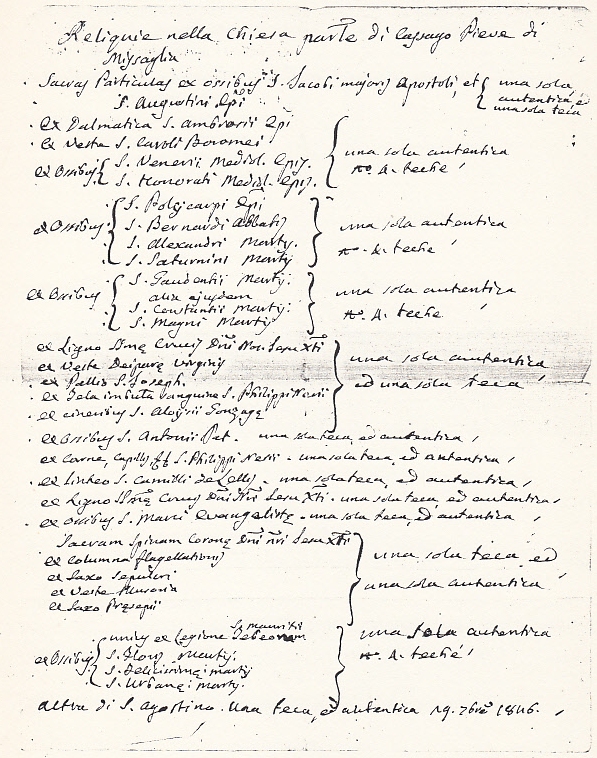 Reliquie nella Chiesa parte di Cassago Pieve di
Missaglia
Sacras Particulas ex ossibus S. Jacobi majoris Apostoli, et una sola
S. Augustini Epi autentica, ed
una sola teca
Ex Dalmatica S. Ambrosii Epi
Ex Veste S. Caroli Boromei
ex Ossibus S. Venerii Mediol. Epis. una sola autentica
S. Honorati Mediol. Epis. n.º 4. teche
S. Polycarpi Epi
ex Ossibus S. Bernardi Abbatis una sola autentica
S. Alexandri Marty. n.º 4. teche
S. Saturnini Marty
S. Gaudentii Marty.
ex Ossibus alia ejusdem una sola autentica
S. Constantii Marty. n.º 4. teche
S. Magni Marty
ex Ligno SSmę Crucis Dñi Nri Jesu Xti
ex Veste Deiparę Virginis una sola autentica
ex Pallio S. Joseph.
ex Tela imbuta sanguine S. Philippi Nerii ed una sola teca
ex cineribus S. Aloysii Gonzagę
ex Ossibus S. Antonii Pat. una sola teca, ed autentica
ex Carne, Capillis S. Philippi Nerii - una sola teca, ed autentica
ex Linteo S. Camilli de Lellis - una sola teca, ed autentica
ex Ligno SSmę Crucis Dñi Nri Jesu Xti - una sola teca, ed autentica
ex Ossibus S. Marci Evangelistę - una sola teca, ed autentica
Sacram Spinam Coronę Dñi nri Jesu Xti
ex Columna flagellationis una sola teca ed
ex Saxo Sepulcri
ex Veste una sola autentica
ex Saxo Pręsepii
S. Mauritii
unius ex Legione Tebeorum una sola autentica
ex Ossibus S. Marty. n.º 4. teche
S. marty
S. Urbanę marty.
altra di S. Agostino. Una teca, ed autentica 19. 7bre 1846.